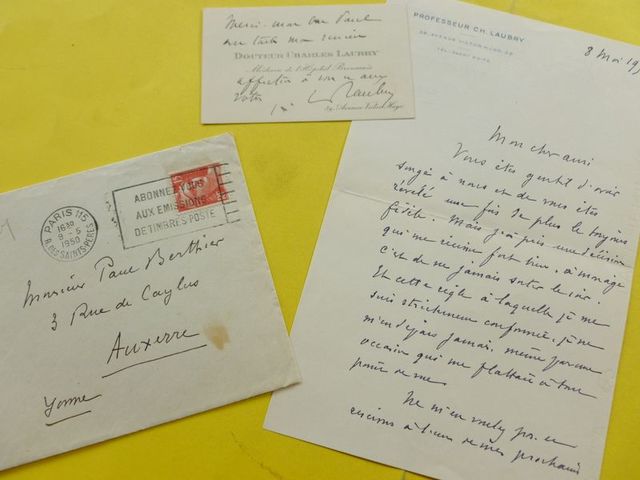 Merci mon bon Paul
DOCTEUR CHARLES LAUBRY
Médecin de l'Hôpital Broussais
affection à vous
votre
Laubry
Avenue Victor-Hugo
PROFESSEUR CH. LAUBRY
AVENUE VICTOR-HUGO
8 Mai 19
Mon cher ami
Vous êtes gentil d'avoir
songé à nous et de vous être
révélé une fois de plus le toujours
fidèle. Mais j'ai pris une décision
qui me réussit fort bien, à mon âge
c'est de ne jamais sortir le soir.
Et cette règle à laquelle je me
suis strictement conformé, je ne
m'en départis jamais, même pour une
occasion qui me flattait à tout
point de vue.
Ne m'en voulez pas
à l'un de mes prochains
PARIS 115
16H30
9 - 5
1950
R. DES SAINTS-PÈRES
ABONNEZ-VOUS
AUX EMISSIONS
DE TIMBRES-POSTE
Monsieur Paul Berthier
3 Rue de Caylus
Auxerre
Yonne